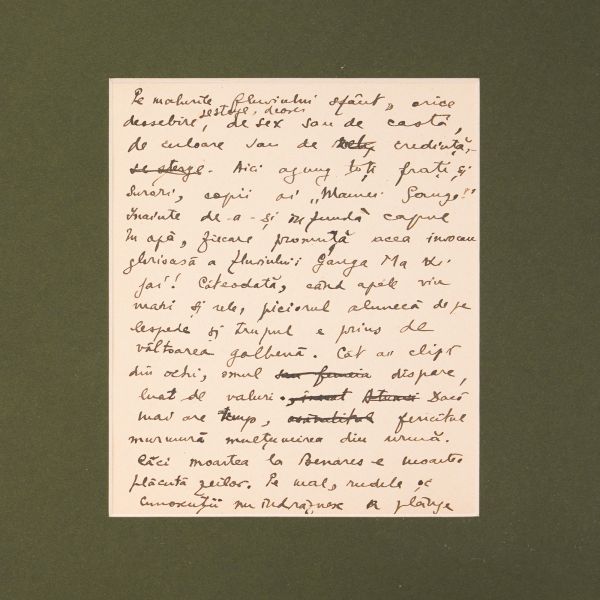 Pe malurile fluviului sfânt, orice
se șterge, deoseb
deosebire, de sex sau de castă,
de culoare sau de credință,
se șterge. Aici ajung toți frați și
surori, copii ai „Mamei Gange".
Înainte de-a-și înfunda capul
în apă, fiecare pronunță acea invocare
glorioasă a fluviului Ganga Ma Ki
jai! Câteodată, când apele vin
mari și rele, piciorul alunecă de pe
lespede și trupul e prins de
vâltoarea galbenă. Cât ai clipi
din ochi, omul sau femeia dispare,
luat de valuri. Atunci Dacă
mai are timp, fericitul
murmură mulțumirea din urmă.
Căci moartea la Benares e moartea
plăcută zeilor. Pe mal, rudele și
cunoscuții nu îndrăznesc a plânge